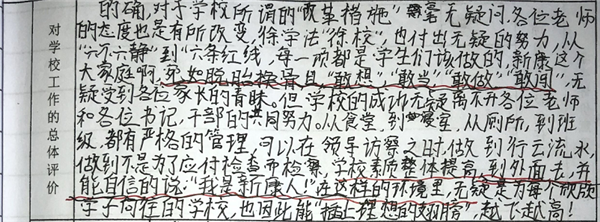 对学校工作的总体评价
的确,对于学校所谓的"改革措施"毫无疑问各位老师
的态度也是有所改变,徐学法"徐校",也付出无疑的努力,从
"六不六静"到"六条红线,每一所都是学生们该做的,新康这个
大家庭啊,宛如脱胎换骨且"敢想""敢当"敢做""敢闯",无
疑受到各位家长的青睐。但学校的成功无疑离不开各位老师
和各位书记,干部的共同努力。从食堂,到寝室,从厕所,到班
级,都有严格的管理,可以在领导访察之时,做到行云流水,
做到不是为了应付检查而检察,学校素质整体提高,到外面去,并
能自信的说:"我是新康人!"在这样的环境里,无疑变为每个
学子向往的学校,也因此能"插上理想的翅膀",越飞越高!